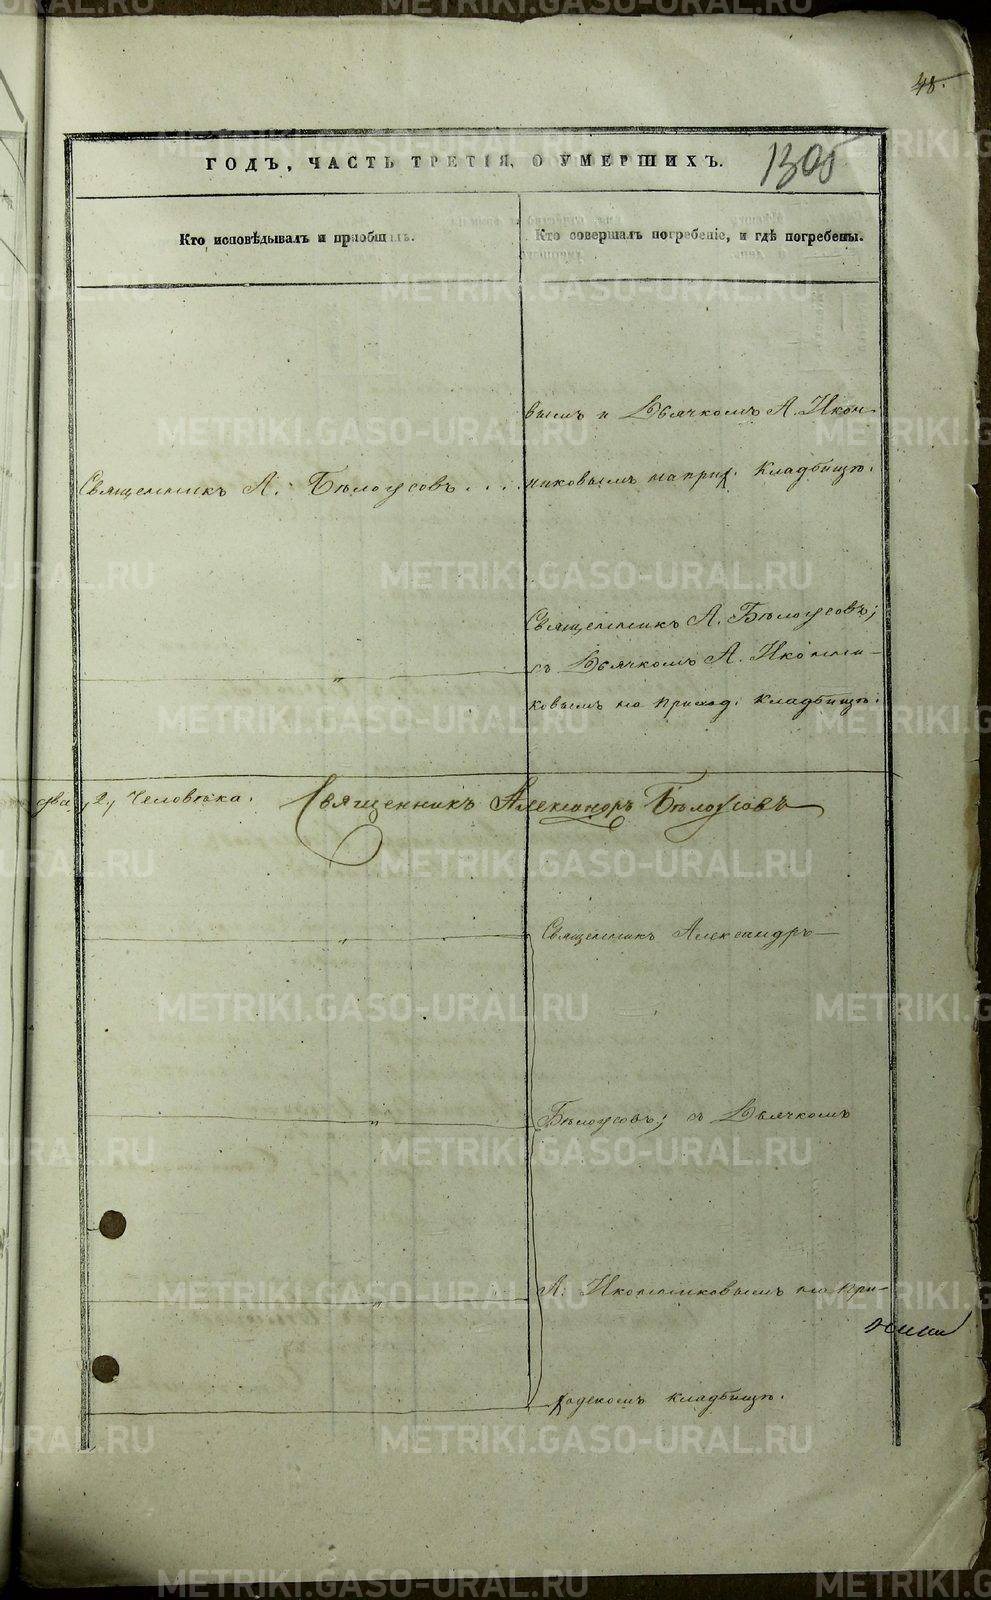 48.
ГОДЪ, ЧАСТЬ ТРЕТІЯ, О УМЕРШИХЪ.
1305
Кто исповѣдывалъ и пріобщалъ.
Кто совершалъ погребеніе, и гдѣ погребены.
вымъ и Дьячкомъ А. Икон-
Священникъ А. Бѣлоусовъ . . .
никовымъ на прих. Кладбищѣ.
Священникъ А. Бѣлоусовъ;
съ Дьячкомъ А. Иконни-
ковымъ на приход. Кладбищѣ.
два „2„ Человѣка. Священникъ Александръ Бѣлоусовъ
Священникъ Александръ
Бѣлоусовъ; съ Дьячкомъ
А. Иконниковымъ на при-
ходскомъ кладбищѣ.
METRIKI.GASO-URAL.RU